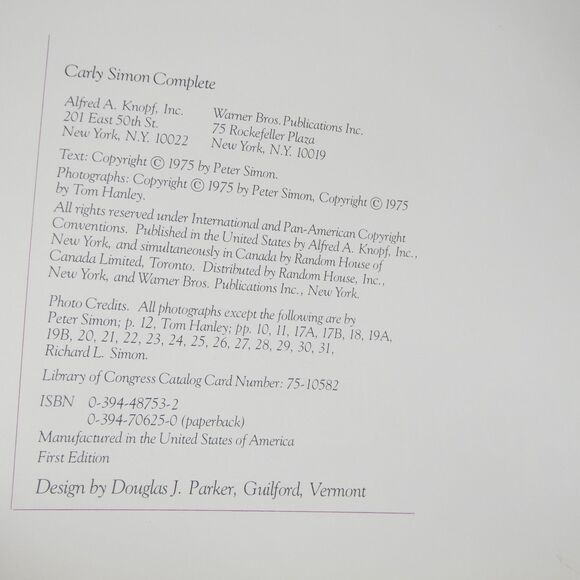 Carly Simon Complete
Alfred A. Knopf, Inc.
201 East 50th St.
New York, N.Y. 10022
Warner Bros. Publications Inc.
75 Rockefeller Plaza
New York, N.Y. 10019
Text: Copyright © 1975 by Peter Simon.
Photographs: Copyright © 1975 by Peter Simon, Copyright © 1975
by Tom Hanley.
All rights reserved under International and Pan-American Copyright
Conventions. Published in the United States by Alfred A. Knopf, Inc.,
New York, and simultaneously in Canada by Random House of
Canada Limited, Toronto. Distributed by Random House, Inc.,
New York, and Warner Bros. Publications Inc., New York.
Photo Credits. All photographs except the following are by
Peter Simon; p. 12, Tom Hanley; pp. 10, 11, 17A, 17B, 18, 19A,
19B, 20, 21, 22, 23, 24, 25, 26, 27, 28, 29, 30, 31,
Richard L. Simon.
Library of Congress Catalog Card Number: 75-10582
ISBN 0-394-48753-2
0-394-70625-0 (paperback)
Manufactured in the United States of America
First Edition
Design by Douglas J. Parker, Guilford, Vermont